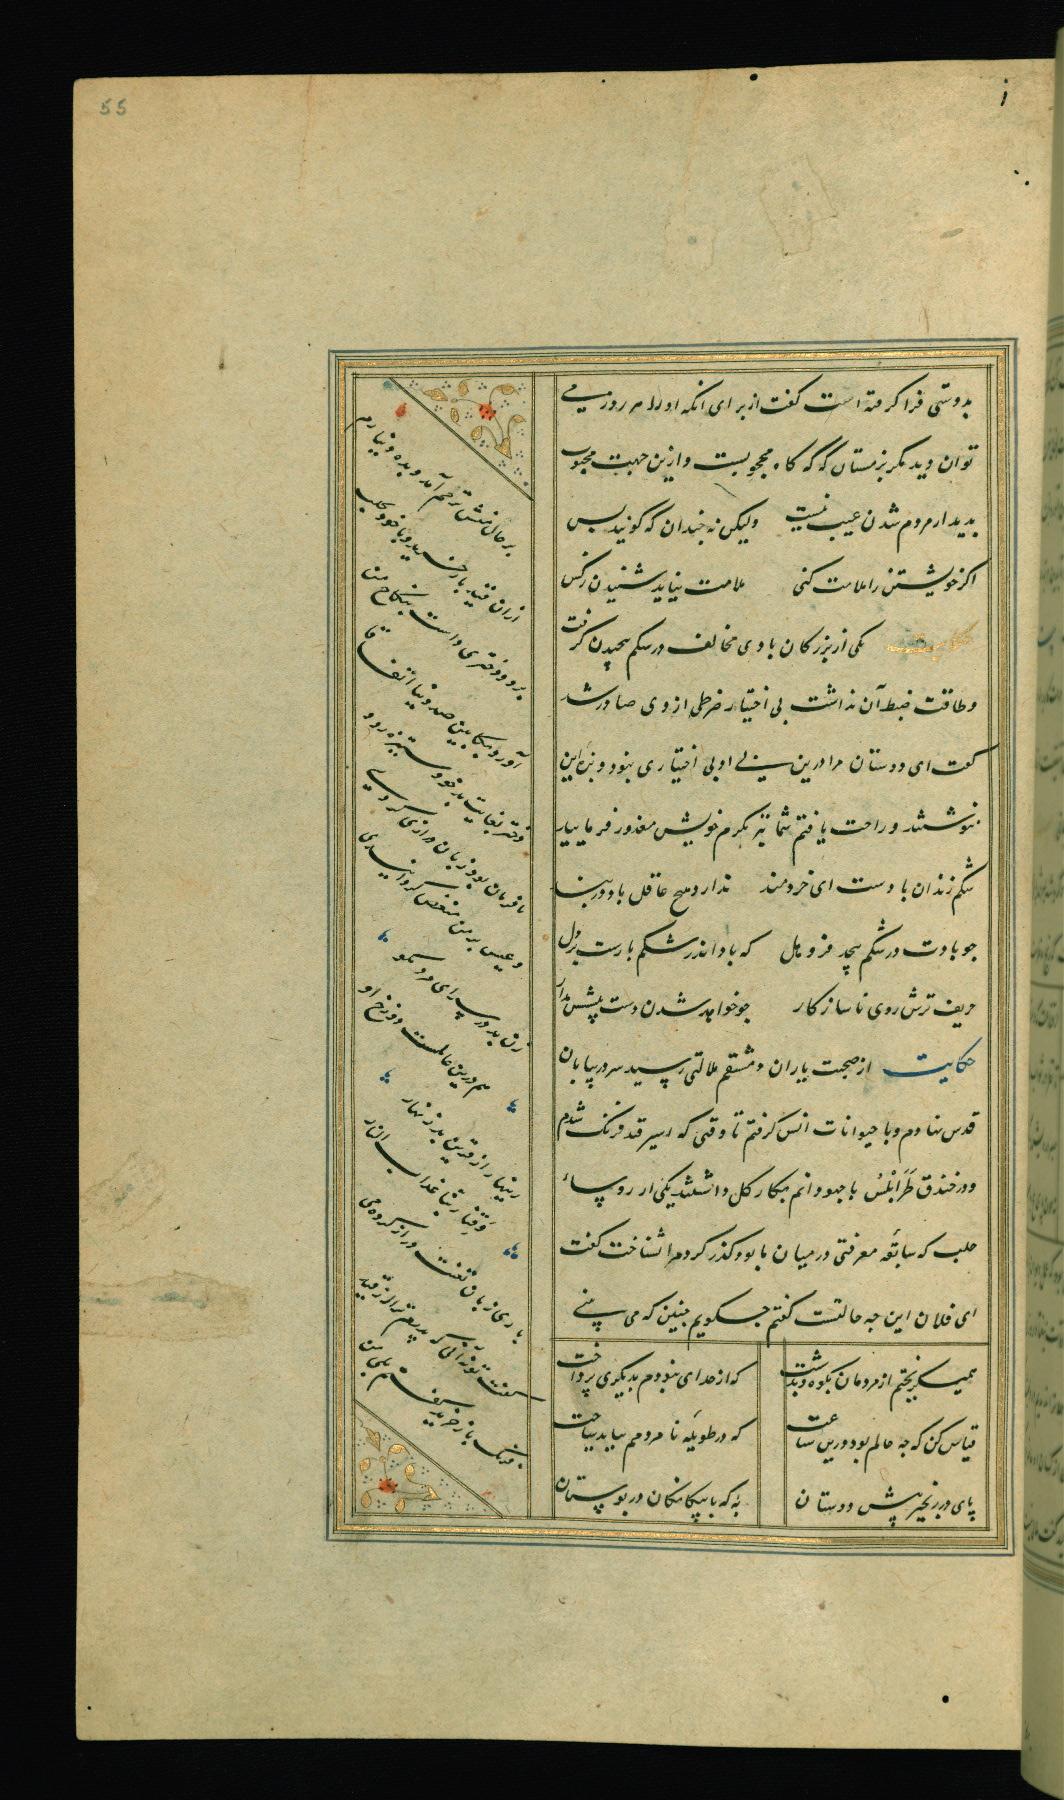 55
بدوستی فرا گرفته است گفت از برای انکه اورا هر روز می
توان دید مکر بزمستان که گه گاه محجوبست و ازین جهت محبوب
بدیدار مردم شدن عیب نیست ولیکن نه چندان که گویند بس
اگر خویشتن را ملامت کنی ملامت نباید شنیدن زکس
حکایت یکی از بزرگان بادی مخالف در شکم پیچیدن گرفت
و طاقت ضبط آن نداشت بی اختیار ضرطی از وی صادر شد
گفت ای دوستان مرا درین اختیاری نبود و بزه این
ننوشتند و راحت یافتم شما نیز بکرم خویش معذور فرمایید
شکم زندان بادست ای خردمند ندارد هیچ عاقل باد در بند
چو بادت در شکم پیچد فرو هل که باد اندر شکم بارست بر دل
حریف ترش روی ناسازکار چو خواهد شدن دست پیشش مدار
حکایت از صحبت یاران دمشقم ملالتی رسید سر در بیابان
قدس نهادم و با حیوانات انس گرفتم تا وقتی که اسیر قید فرنک شدم
و در خندق طرابلس با جهودانم بکار گل داشتند یکی از روساء
حلب که سابقه معرفتی در میان ما بود گذر کرد و مرا شناخت گفت
ای فلان این چه حالتست گفتم چگویم چنین که می بینی
همی گریختم از مردمان بکوه و بدشت که از خدای نبودم بدیگری پرداخت
قیاس کن که چه حالم بود درین ساعت که در طویله نامردمم بباید ساخت
پای در زنجیر پیش دوستان به که با بیگانگان در بوستان
بر حال منش ترحم آمد و بده دینارم
از ان قید باز خرید و با خود بحلب
برد و دختری داشت بنکاح من
آورد بکابین صد دینار اتفاقا
دختر بغایت بدخو و ستیزه رو و
نافرمان بود زبان درازی کردی
و عیش بر من منغص گردانیدی
زن بد در سرای مرد نکو
هم درین عالمست دوزخ او
زینهار از قرین بد زنهار
وقنا ربنا عذاب النار
باری زبان تعنت دراز کرده می
گفت تو نه آنی که پدرم ترا از قید
فرنک باز خرید گفتم بلی من